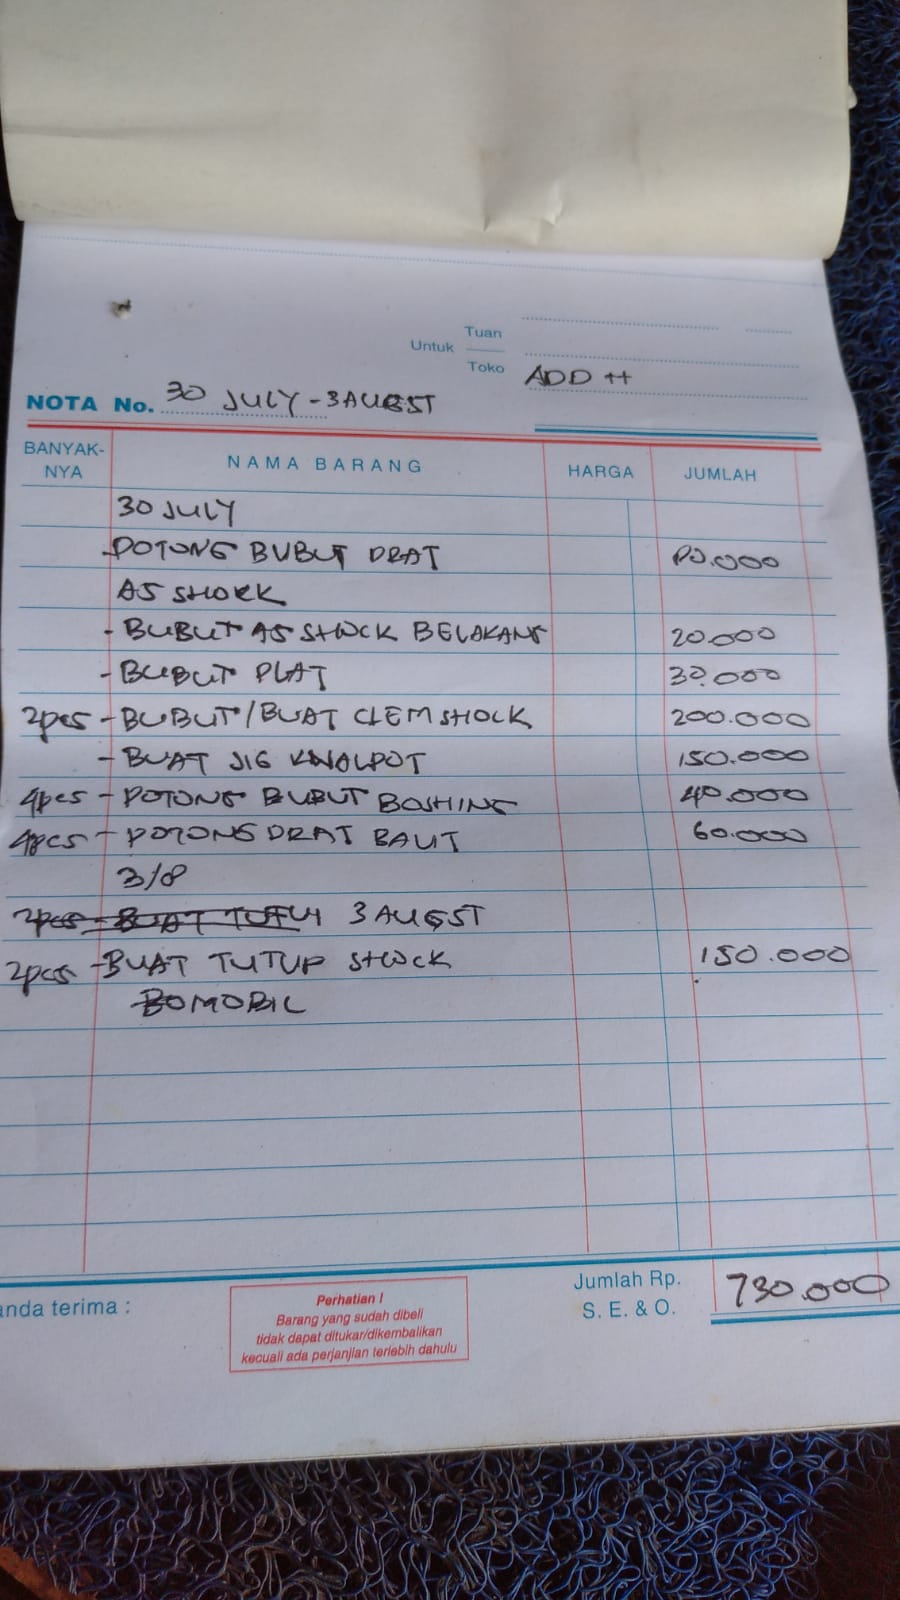 Tuan
Untuk
Toko ADD ++
NOTA No. 30 JULY - 3 AUGEST
BANYAK-NYA NAMA BARANG HARGA JUMLAH
30 JULY
- POTONG BUBUT DRAT 80.000
AS SHOCK
- BUBUT AS SHOCK BELAKANG 20.000
- BUBUT PLAT 30.000
2pcs - BUBUT/BUAT CLEM SHOCK 200.000
- BUAT JIG KNALPOT 150.000
4pcs - POTONG BUBUT BOSHING 40.000
4pcs - POTONG DRAT BAUT 60.000
3/8
2pcs - BUAT TUTU 3 AUGEST
2pcs - BUAT TUTUP SHOCK 150.000
BOMOBIL
anda terima :
Perhatian !
Barang yang sudah dibeli
tidak dapat ditukar/dikembalikan
kecuali ada perjanjian terlebih dahulu
Jumlah Rp. 730.000
S. E. & O.